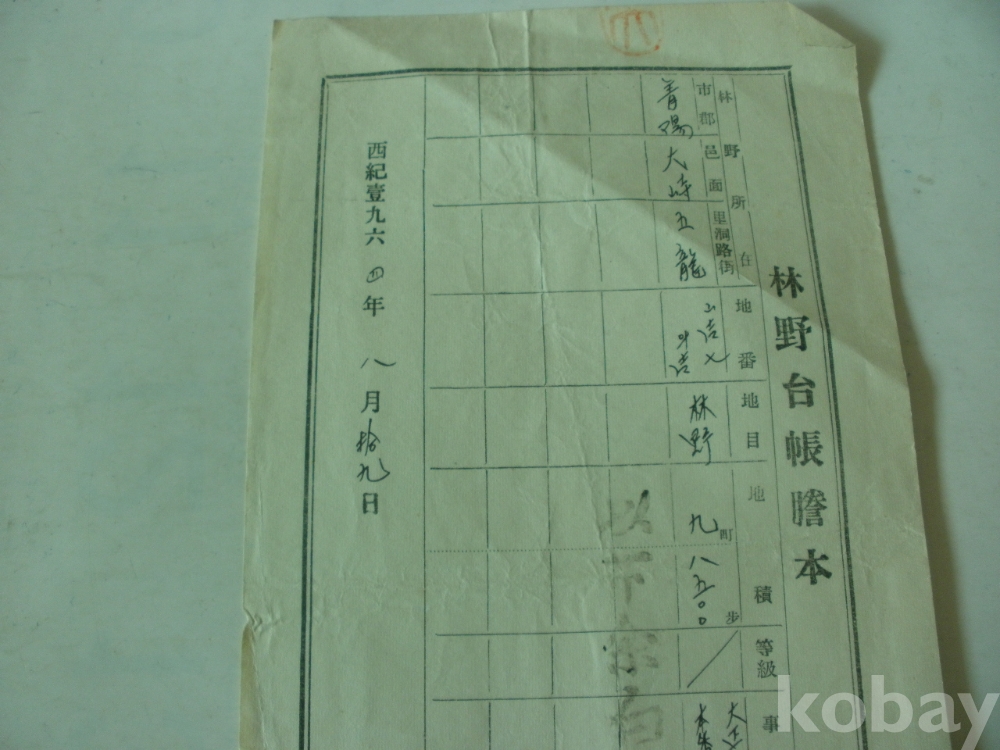 林野台帳謄本
林野所在
市郡
邑面
里洞路街
地番
地目
地積
等級
事
青陽
大峙
五龍
林野
九町
八五〇〇步
以下余白
西紀壹九六四年八月拾九日
kobay